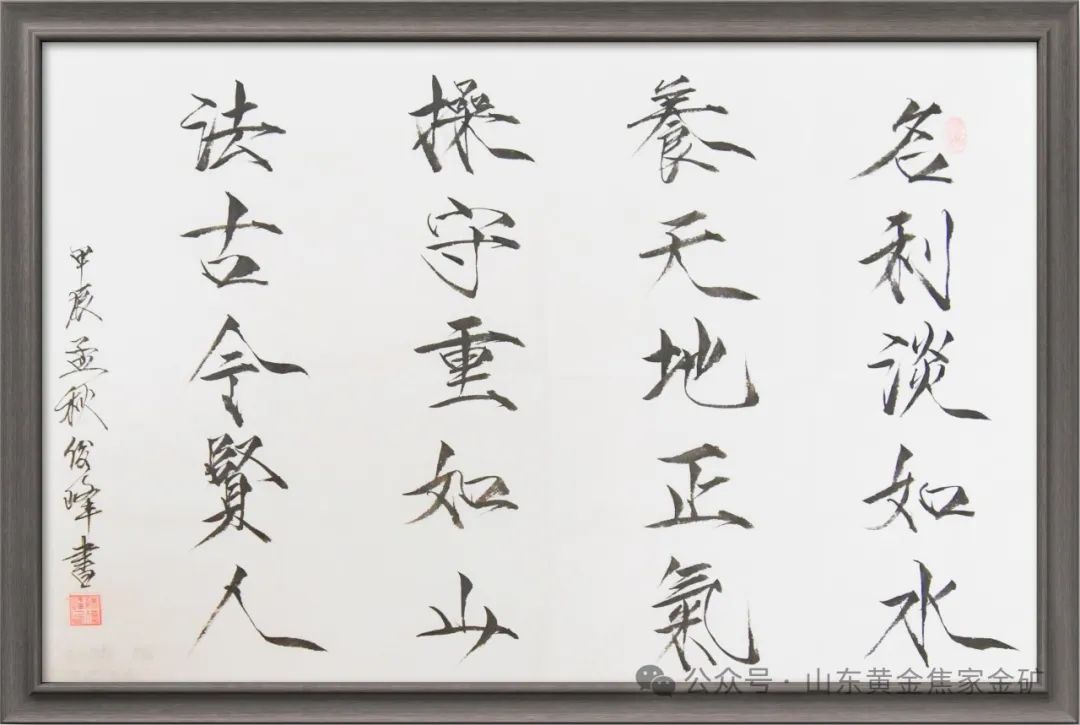 名利淡如水
養天地正氣
操守重如山
法古令賢人
甲辰孟秋俊峰書
公众号·山东黄金焦家金矿